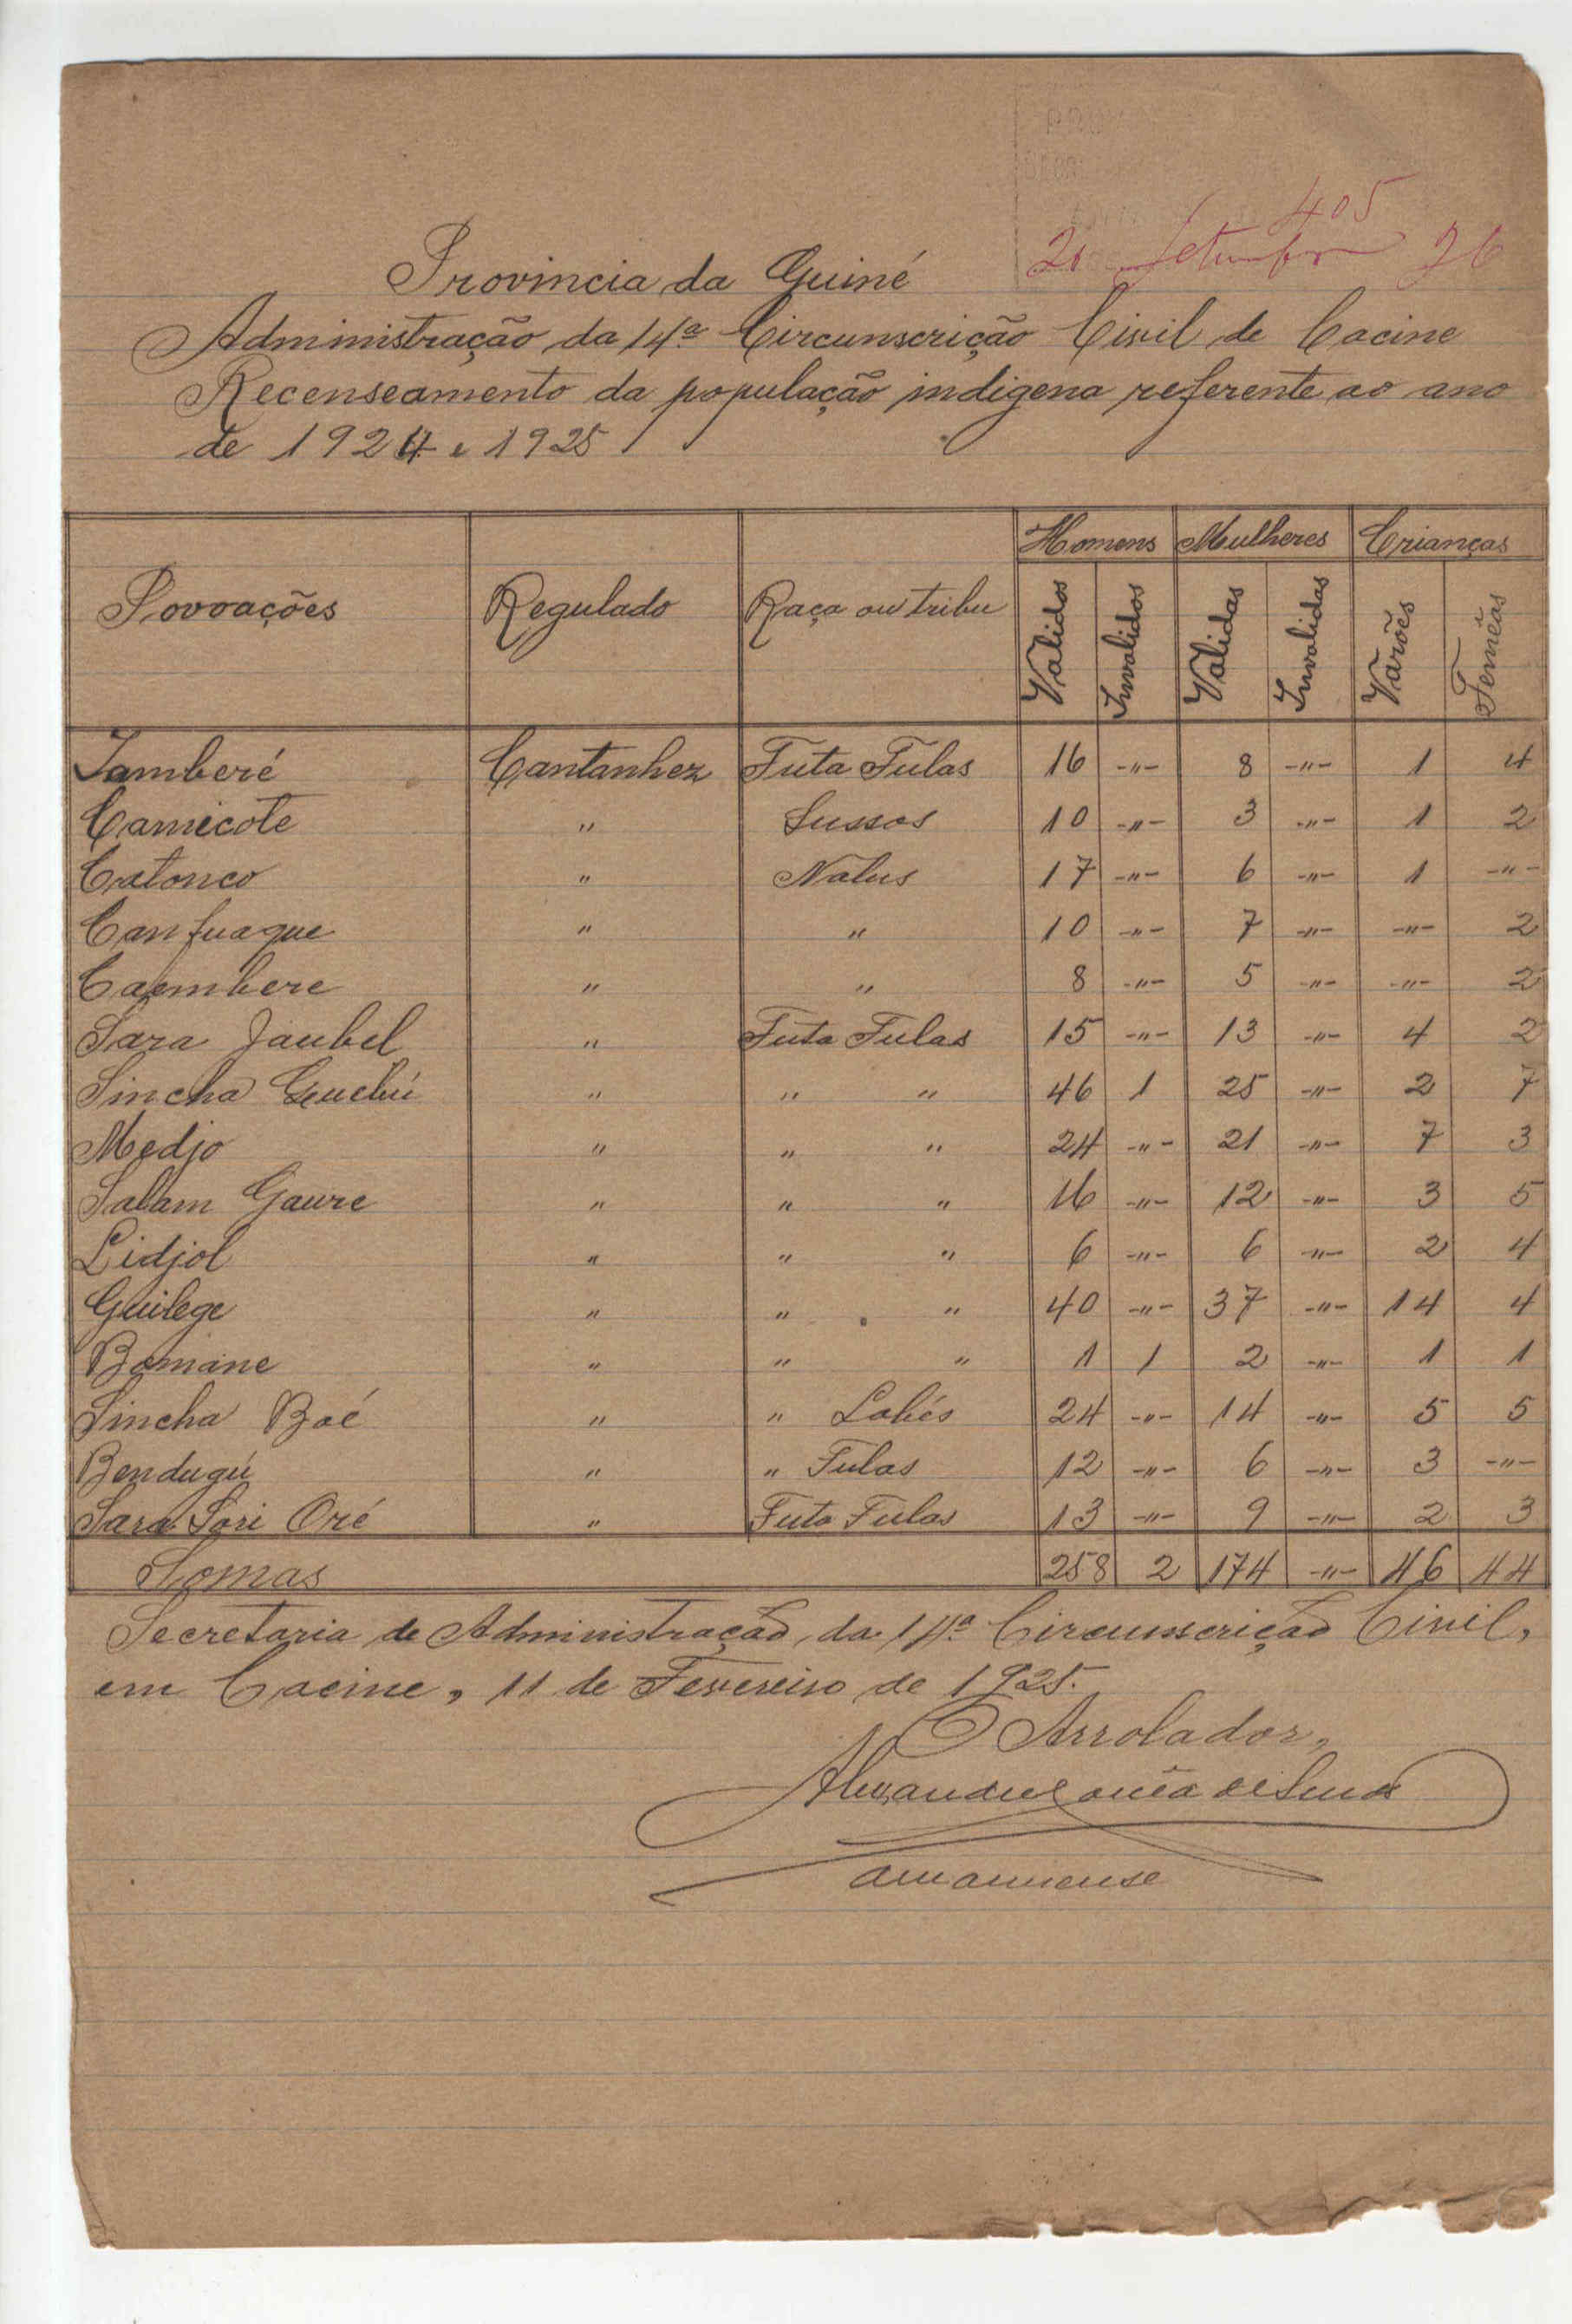 405
20 Setembro 26
Provincia da Guiné
Administração da 14ª Circunscrição Civil de Cacine
Recenseamento da população indigena referente ao ano
de 1924 e 1925
Homens Mulheres Crianças
Povoações Regulado Raça ou tribu Validos Invalidos Validas Invalidas Varões Femeas
Jamberé Cantanhez Futa Fulas 16 -"- 8 -"- 1 4
Camecote " Sussos 10 -"- 3 -"- 1 2
Catonco " Nalus 17 -"- 6 -"- 1 -"-
Canfuaque " " 10 -"- 7 -"- -"- 2
Caembere " " 8 -"- 5 -"- -"- 2
Sara Jaubel " Futa Fulas 15 -"- 13 -"- 4 2
Sincha Guebú " " " 46 1 25 -"- 2 7
Medjo " " " 24 -"- 21 -"- 7 3
Salam Gaure " " " 16 -"- 12 -"- 3 5
Lidjol " " " 6 -"- 6 -"- 2 4
Guilege " " " 40 -"- 37 -"- 14 4
Bomane " " " 1 1 2 -"- 1 1
Sincha Boé " " Labés 24 -"- 14 -"- 5 5
Bendugú " " Fulas 12 -"- 6 -"- 3 -"-
Sara Sori Oré " Futa Fulas 13 -"- 9 -"- 2 3
Somas 258 2 174 -"- 46 44
Secretaria de Administração, da 14ª Circumscrição Civil,
em Cacine, 11 de Fevereiro de 1925.
O Arrolador,
amanuense